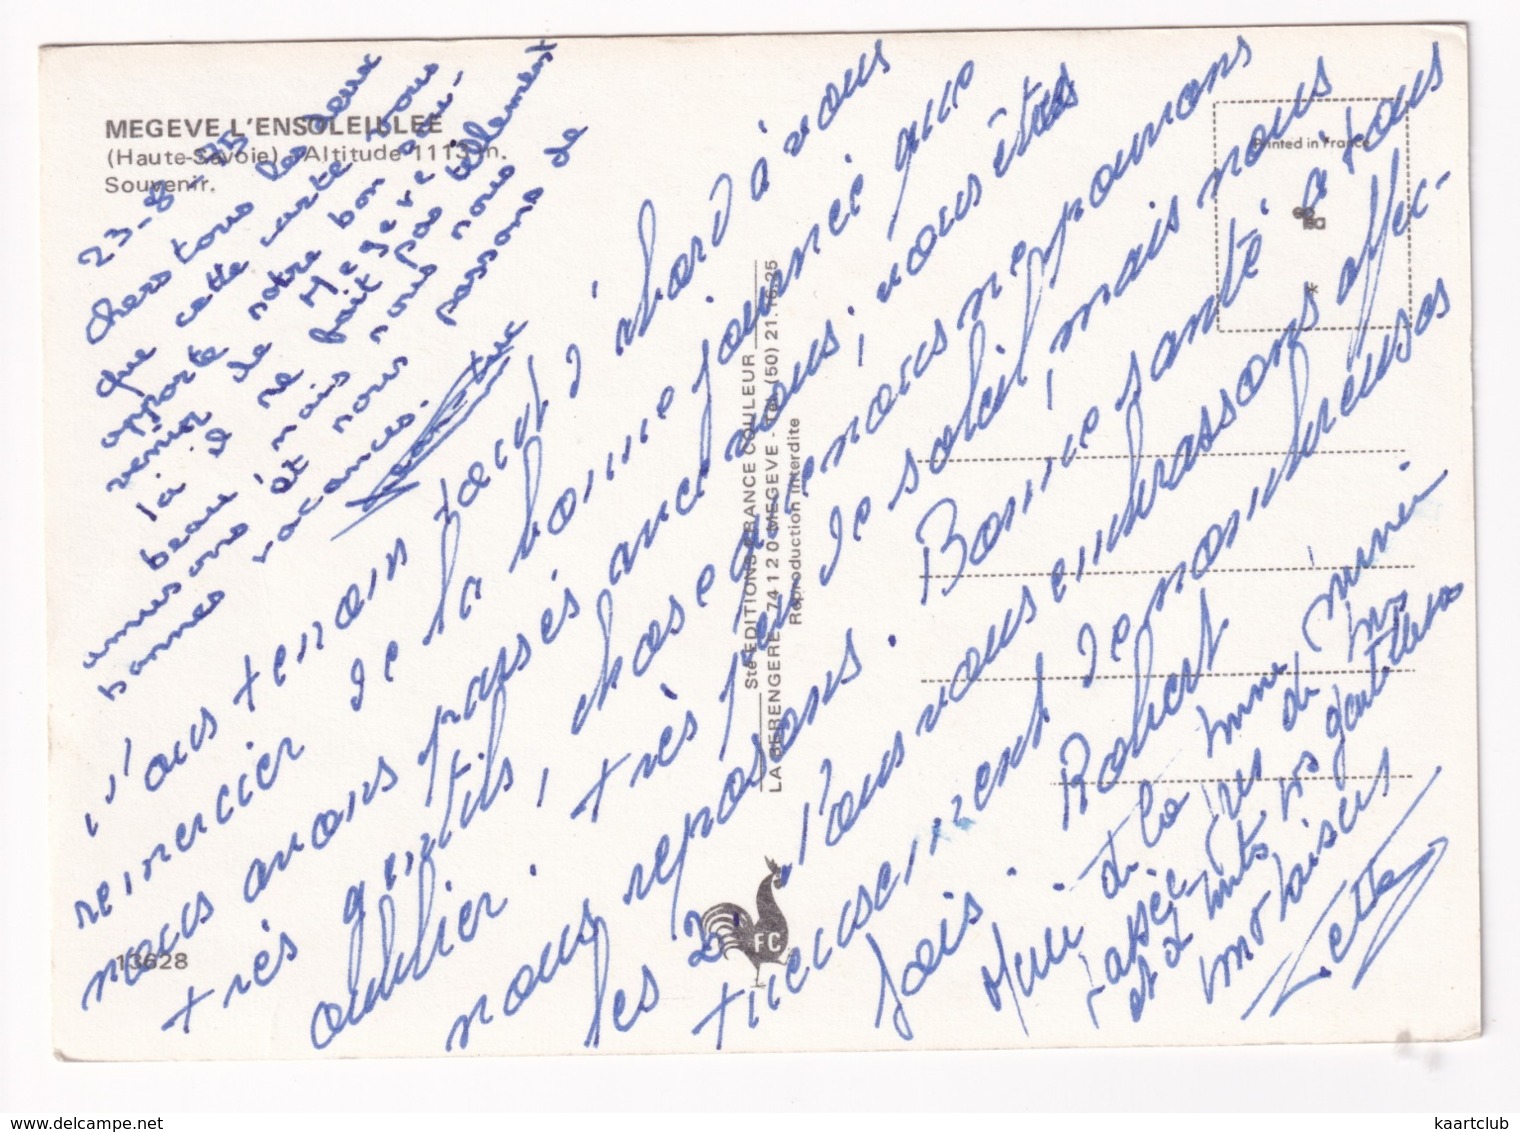 MEGEVE L'ENSOLEILLEE
(Haute-Savoie) - Altitude 1113 m.
Souvenir.
23-8-75
chers tous les deux
que cette carte vous
apporte notre bon sou-
venir de Megève
là il ne fait pas tellement
beau mais nous nous
amusons et nous passons de
bonnes vacances.
Nous tenons tout d'abord à vous
remercier de la bonne journée que
nous avons passés avec vous, vous êtes
très gentils, chose que nous ne pouvons
oublier. très peu de soleil, mais nous
nous reposons. Bonne santé à tous
les 2. Nous vous embrassons affec-
tueusement de nombreuses
fois. Robert
Merci de la
passée
et
Printed in France
*
Sté EDITIONS FRANCE COULEUR
LA BERENGERE 74120 MEGEVE - Tél. (50) 21.16.25
Reproduction interdite
FC
13628
kaartclub
www.delcampe.net